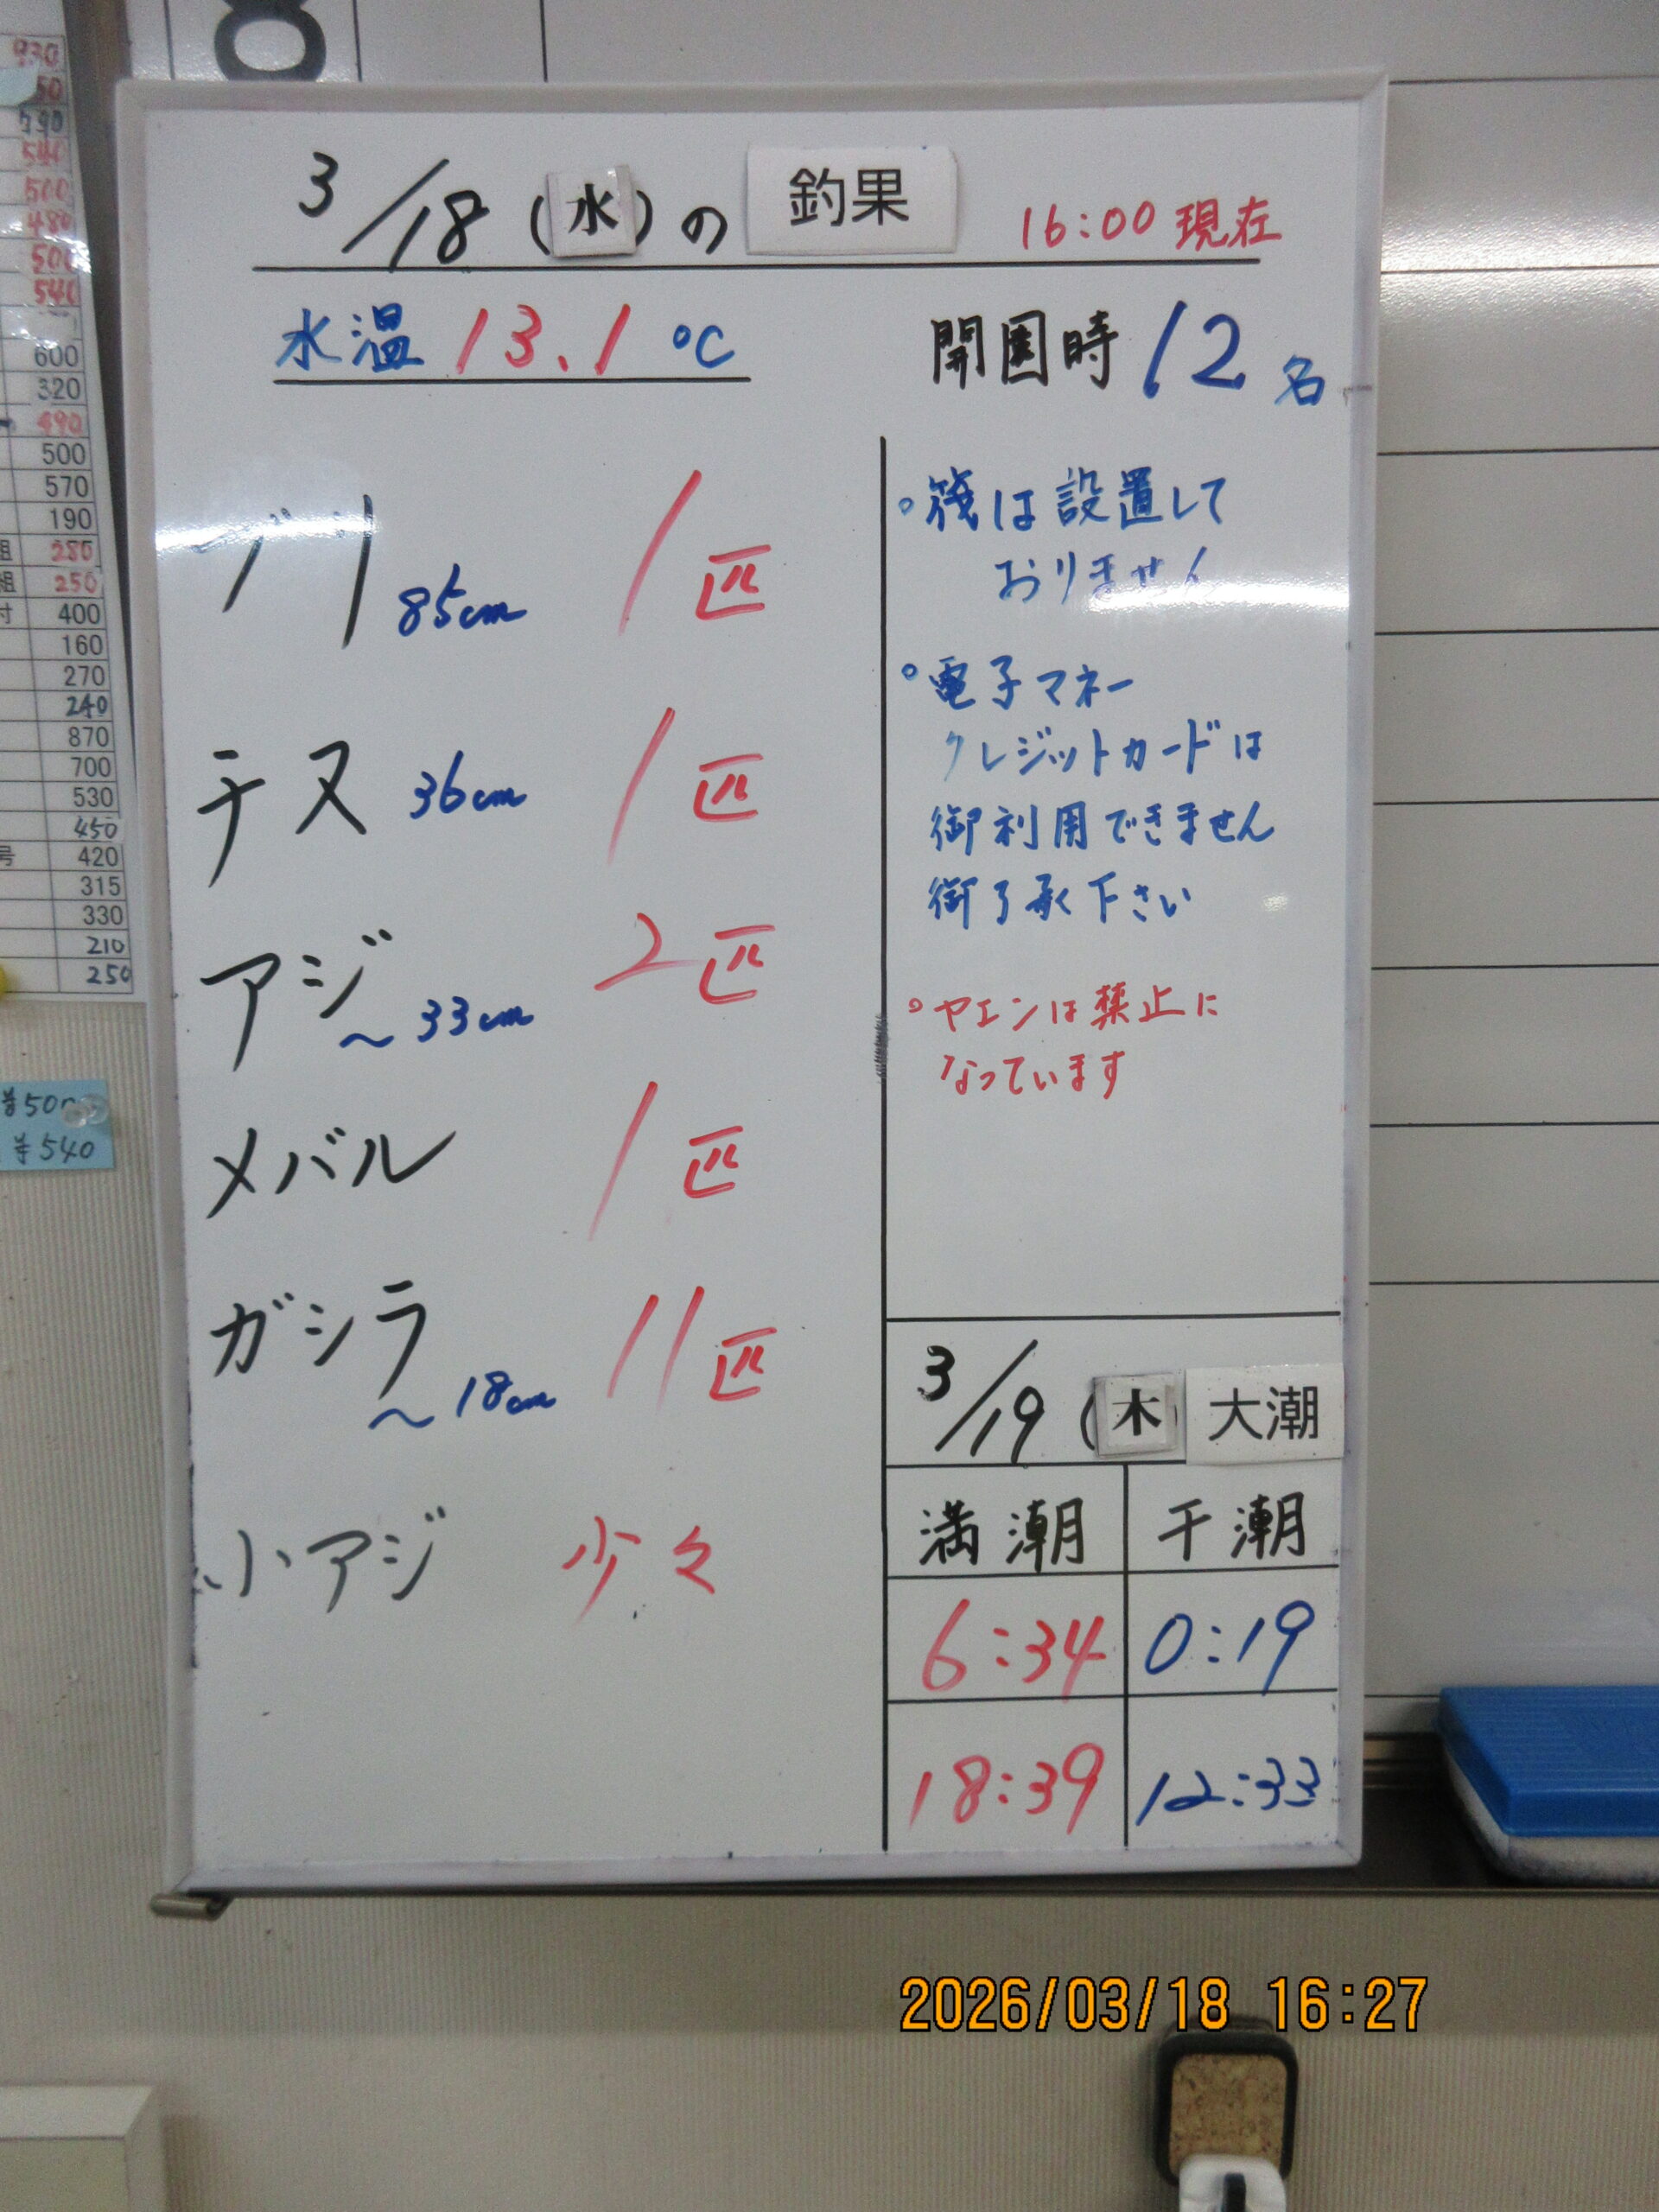 3/18(水)の 釣果 16:00 現在
水温 13.1 ℃ 開園時 12名
ブリ 85cm 1匹
チヌ 36cm 1匹
アジ ～33cm 2匹
メバル 1匹
ガシラ ～18cm 11匹
小アジ 少々
。筏は設置して
おりません
。電子マネー
クレジットカードは
御利用できません
御了承下さい
。ヤエンは禁止に
なっています
3/19 (木) 大潮
満潮 干潮
6:34 0:19
18:39 12:33
930
50
790
540
500
480
500
540
600
320
490
500
570
190
組 280
組 250
付 400
160
270
240
870
700
530
450
号 420
315
330
210
250
¥540
2026/03/18 16:27